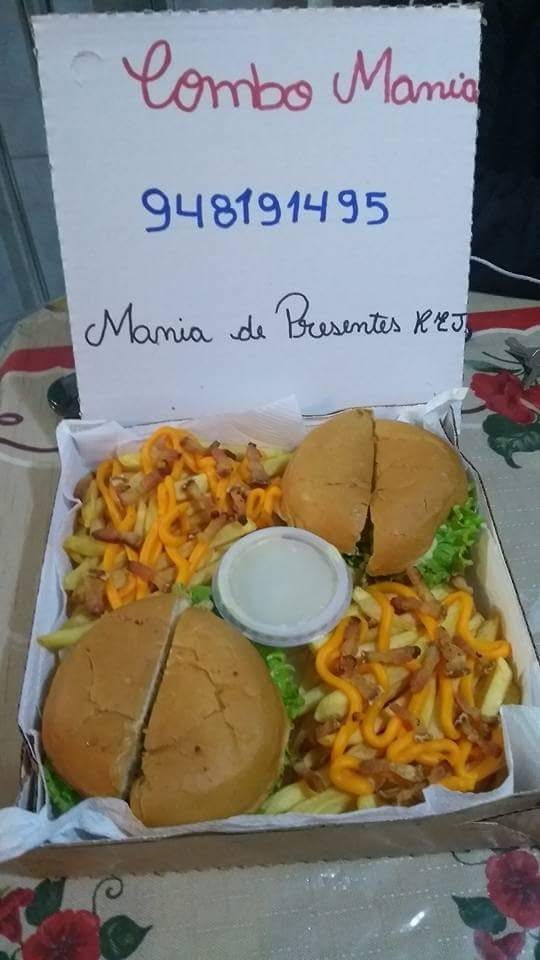 Combo Mania
948191495
Mania de Presentes